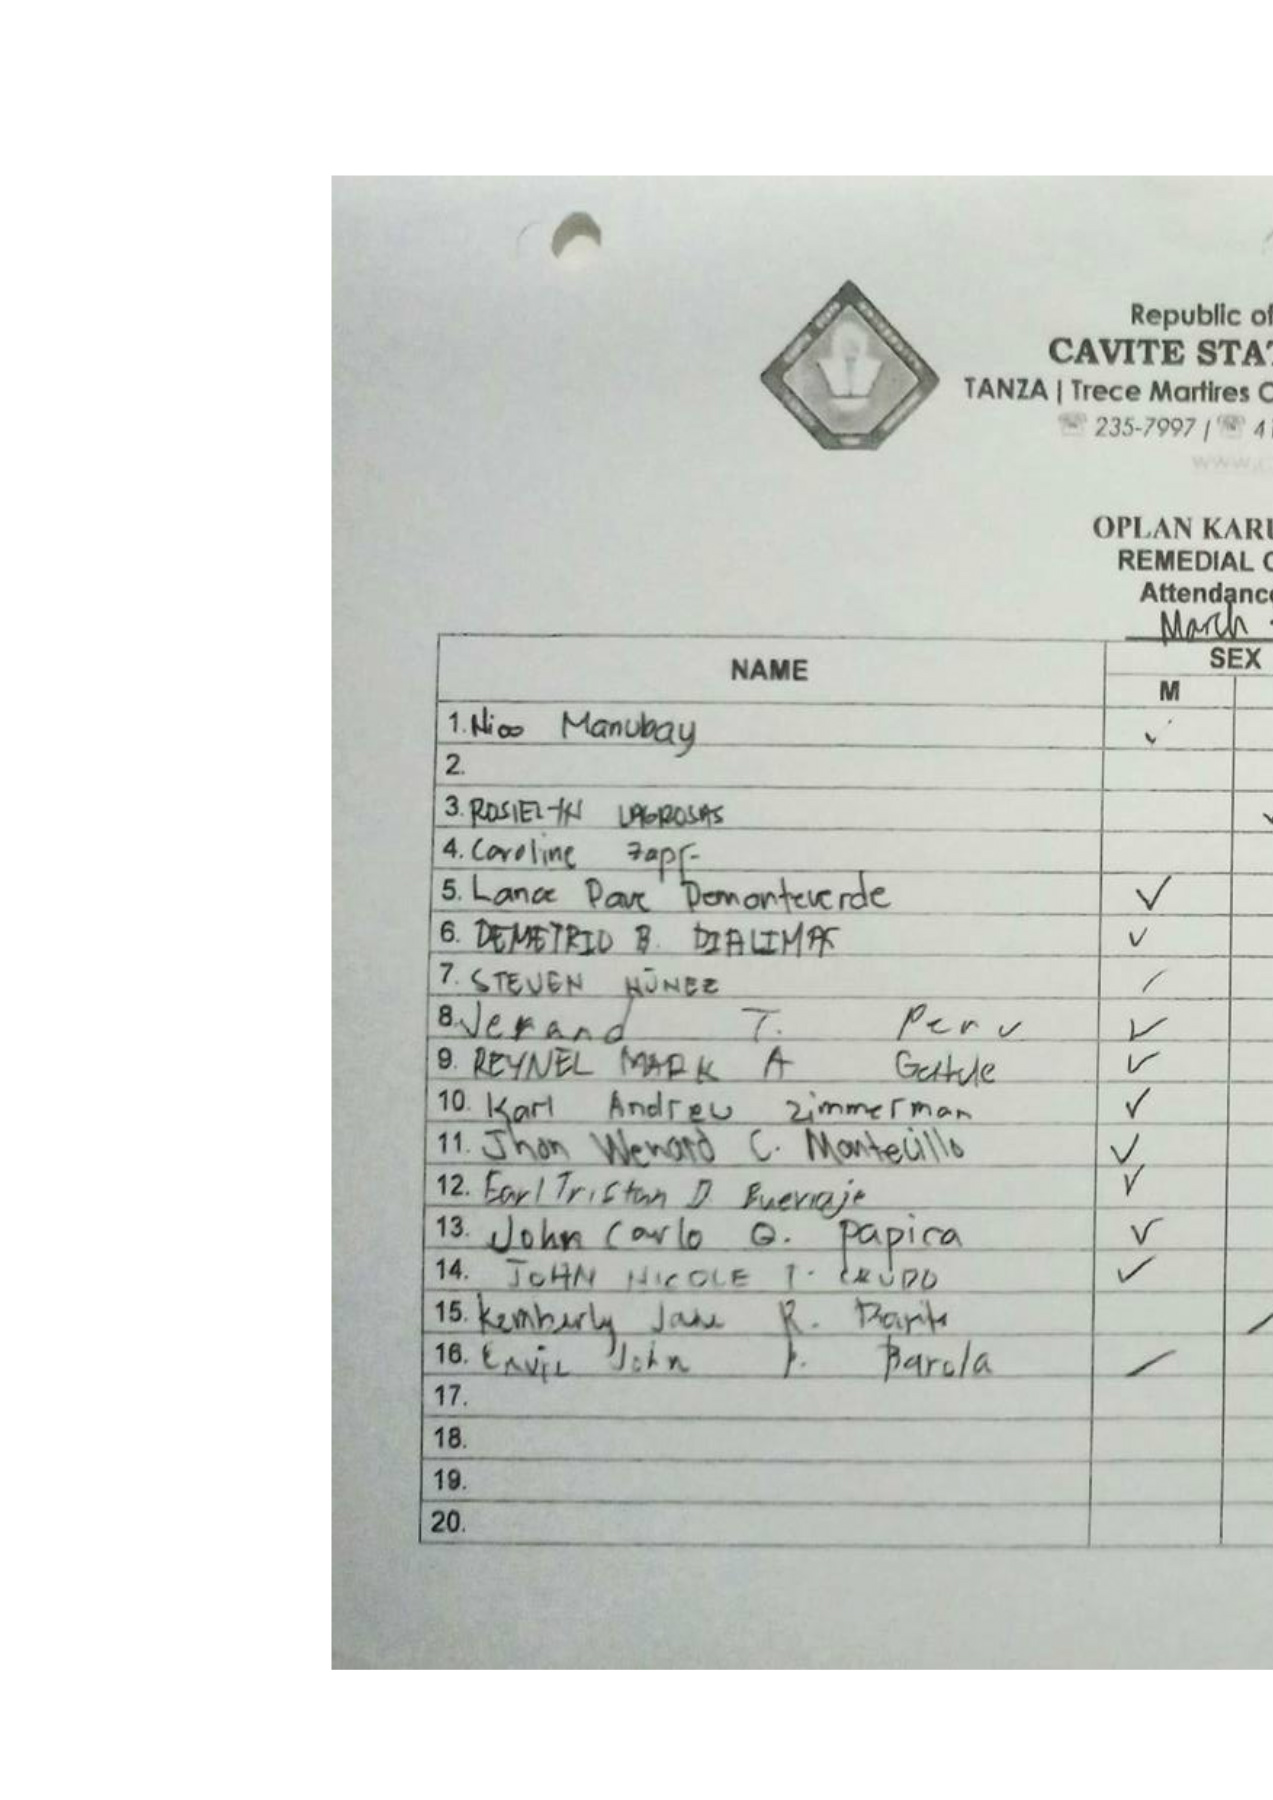 Republic of
CAVITE STAT
TANZA | Trece Martires C
☏ 235-7997 / ☏ 41
www.c
OPLAN KARU
REMEDIAL C
Attendance
March
NAME SEX
M
1. Nico Manubay ✓
2.
3. ROSIELYN LAGROSAS
4. Caroline
5. Lance Dave Demonteverde ✓
6. DEMETRIO B. DIALIMAS ✓
7. STEVEN NÚNEZ /
8. Jerand T. Peru ✓
9. REYNEL MARK A ✓
10. Karl Andrew Zimmerman ✓
11. Jhon Wenard C. Montecillo ✓
12. Earl Tristan D. Buenaje ✓
13. John Carlo G. Papira ✓
14. JOHN NICOLE T. CRUDO ✓
15. Kemberly Jane R. /
16. John Barola /
17.
18.
19.
20.